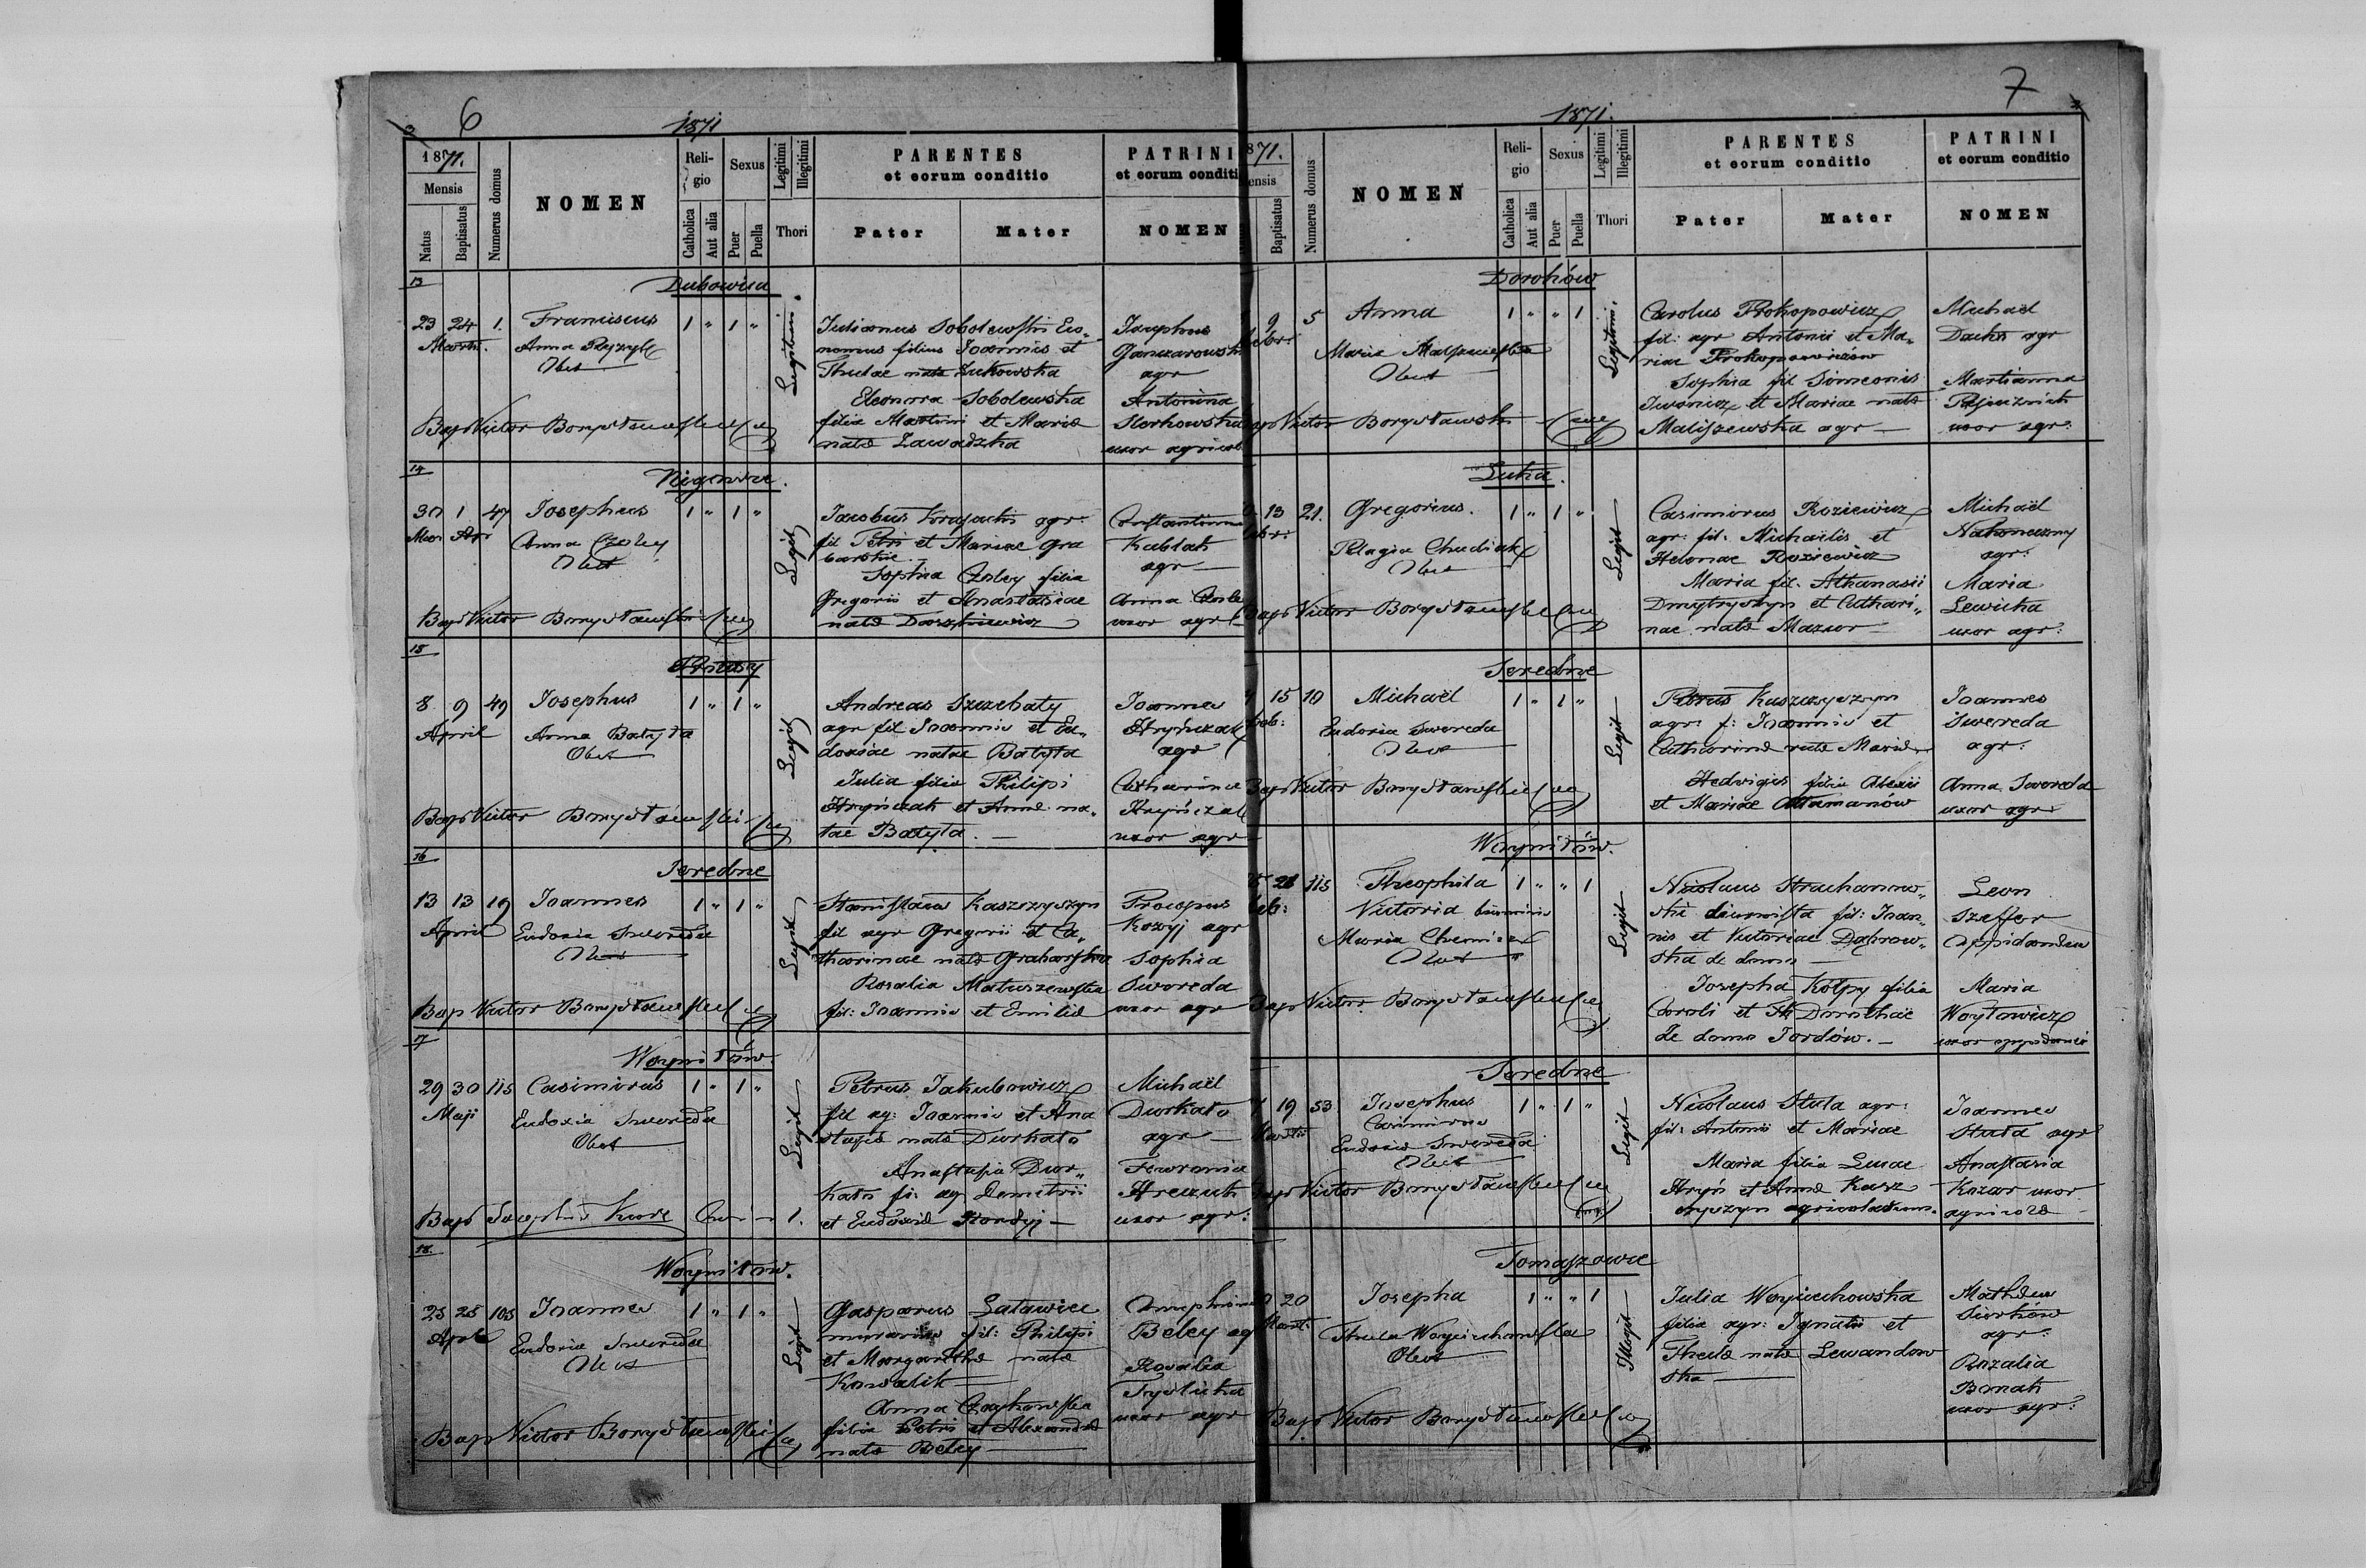 6
1871
1871.
Mensis
Natus
Baptisatus
Numerus domus
NOMEN
Religio
Catholica
Aut alia
Sexus
Puer
Puella
Legitimi
Illegitimi
Thori
PARENTES
et eorum conditio
Pater
Mater
PATRINI
et eorum conditi
NOMEN
13
Dubowica
23 24 1. Franciscus 1 " 1 "
Martii.
Obst
Legitimi.
Julianus Sobolewski
filius Joannis et
Theclae nata Zukowska
Eleonora Sobolewska
filia Martini et Mariae
natae Zawadzka
Josephus
Ganczarowski
agr
Antonina
uxor agricol
Bapt Victor Borysławski
14
30 1 47 Josephus 1 " 1 "
Mar Apr
Anna Czoley
Obst
Legit
Jacobus agr.
fil Petri et Mariae Gra
barskie
Sophia Czoley filia
Gregorii et Anastasiae
natae
Constantinus
Kablak
agr
Anna
uxor agr
Bapt Victor Borysławski
15
8 9 49 Josephus 1 " 1 "
April
Anna Batyta
Obst
Legit
Andreas Szczebaty
agr fil Joannis et Eu„
doxiae natae Batyta
Julia filia Philipi
Hryńczak et Annae na„
tae Batyta.
Joannes
Hryńczak
agr
Catharina
Hryńczak
uxor agr
Bapt Victor Borysławski
16
Seredne
13 13 19 Joannes 1 " 1 "
April
Eudoxia Swereda
Obst
Legit
Stanisław Kaszczyszyn
fil agr Gregorii et Ca„
tharinae natae Grabarska
Rosalia Matuszewska
fil: Joannis et Emiliae
Procopius
Kozyj agr
Sophia
Swereda
uxor agr
Bap Victor Borysławski
17
Wojniłów.
29 30 115 Casimirus 1 " 1 "
Maji
Eudoxia Swereda
Obst
Legit
Petrus Jakubowicz
fil ag: Joannis et Ana
stasiae natae Diorkato
Anastasia Dior„
kato fi: ag Demetrii
et Eudoxiae
Michaël
Diorkato
agr
Fewronia
Hreczuk
uxor agr:
Bapt Josephus
18.
Wojniłów.
25 25 105 Joannes 1 " 1 "
April
Eudoxia Swereda
Obst
Legit
Gasparus Latawiec
murarius fil: Philipi
et Margarithae natae
Kowalik
Anna Czajkowska
filia Petri et Alexandrae
natae Beley
Onuphrius
Beley ag
Rosalia
uxor agr
Bap Victor Borysławski
7
1871.
871.
ensis
Baptisatus
Numerus domus
NOMEN
Religio
Catholica
Aut alia
Sexus
Puer
Puella
Legitimi
Illegitimi
Thori
PARENTES
et eorum conditio
Pater
Mater
PATRINI
et eorum conditio
NOMEN
Dorohów
9 5 Anna 1 " " 1
Obst
Legitimi.
Carolus Prokopowicz
fil: agr Antonii et Ma„
riae Prokopowiczów
Sophia fil Simeonis
Iwonicz et Mariae natae
Maliszewska agr
Michaël
agr
Marianna
uxor agr:
Victor Borysławski
Łuka.
13 21. Gregorius. 1 " 1 "
Pelagia Chudiak
Obst
Legit
Casimirus Roziewicz
agr: fil: Michaëlis et
Helenae Roziewicz
Maria fil. Athanasii
Dmytryszyn et Cathari„
nae natae Mazur
Michaël
agr:
Maria
Lewicka
uxor agr:
Bapt Victor Borysławski
Seredne
15 10 Michaël 1 " 1 "
Eudoxia Swereda
Obst
Legit
Petrus Kaszczyszyn
agr: f: Joannis et
Catharinae natae
Hedvigis filia Alexii
et Mariae Attamanów
Joannes
Swereda
agr:
Anna Swereda
uxor agr
Bapt Victor Borysławski
Wojniłów.
115 Theophila 1 " " 1
Victoria binominis
Maria
Obst
Legit
Nicolaus Strachanow„
ski diurnista fil: Joan„
nis et Victoriae Dąbrow„
ska de domo
Josepha Kolpy filia
Caroli et Dorotheae
de domo Tordów.
Leon
Szeffer
Oppidanus
Maria
Woytowicz
uxor
Bapt Victor Borysławski
Seredne
19 53 Josephus 1 " 1 "
Martii
Casimirus
Eudoxia Swereda
Obst
Legit
Nicolaus Stuła agr:
fil: Antonii et Mariae
Maria filia Lucae
Hryń et Annae Kasz
czyszyn agricolarum.
Joannes
Stuła agr
Anastasia
Kozar uxor
agricolae
Victor Borysławski
Tomaszowce
20 Josepha 1 " " 1
Mart:
Thecla Wojciechowska
Obst
Illegit
Julia Wojciechowska
filia agr: Ignatii et
Theclae natae Lewandow
ska
Mathaeus
Siorków
agr:
Rozalia
uxor agr:
Bapt Victor Borysławski